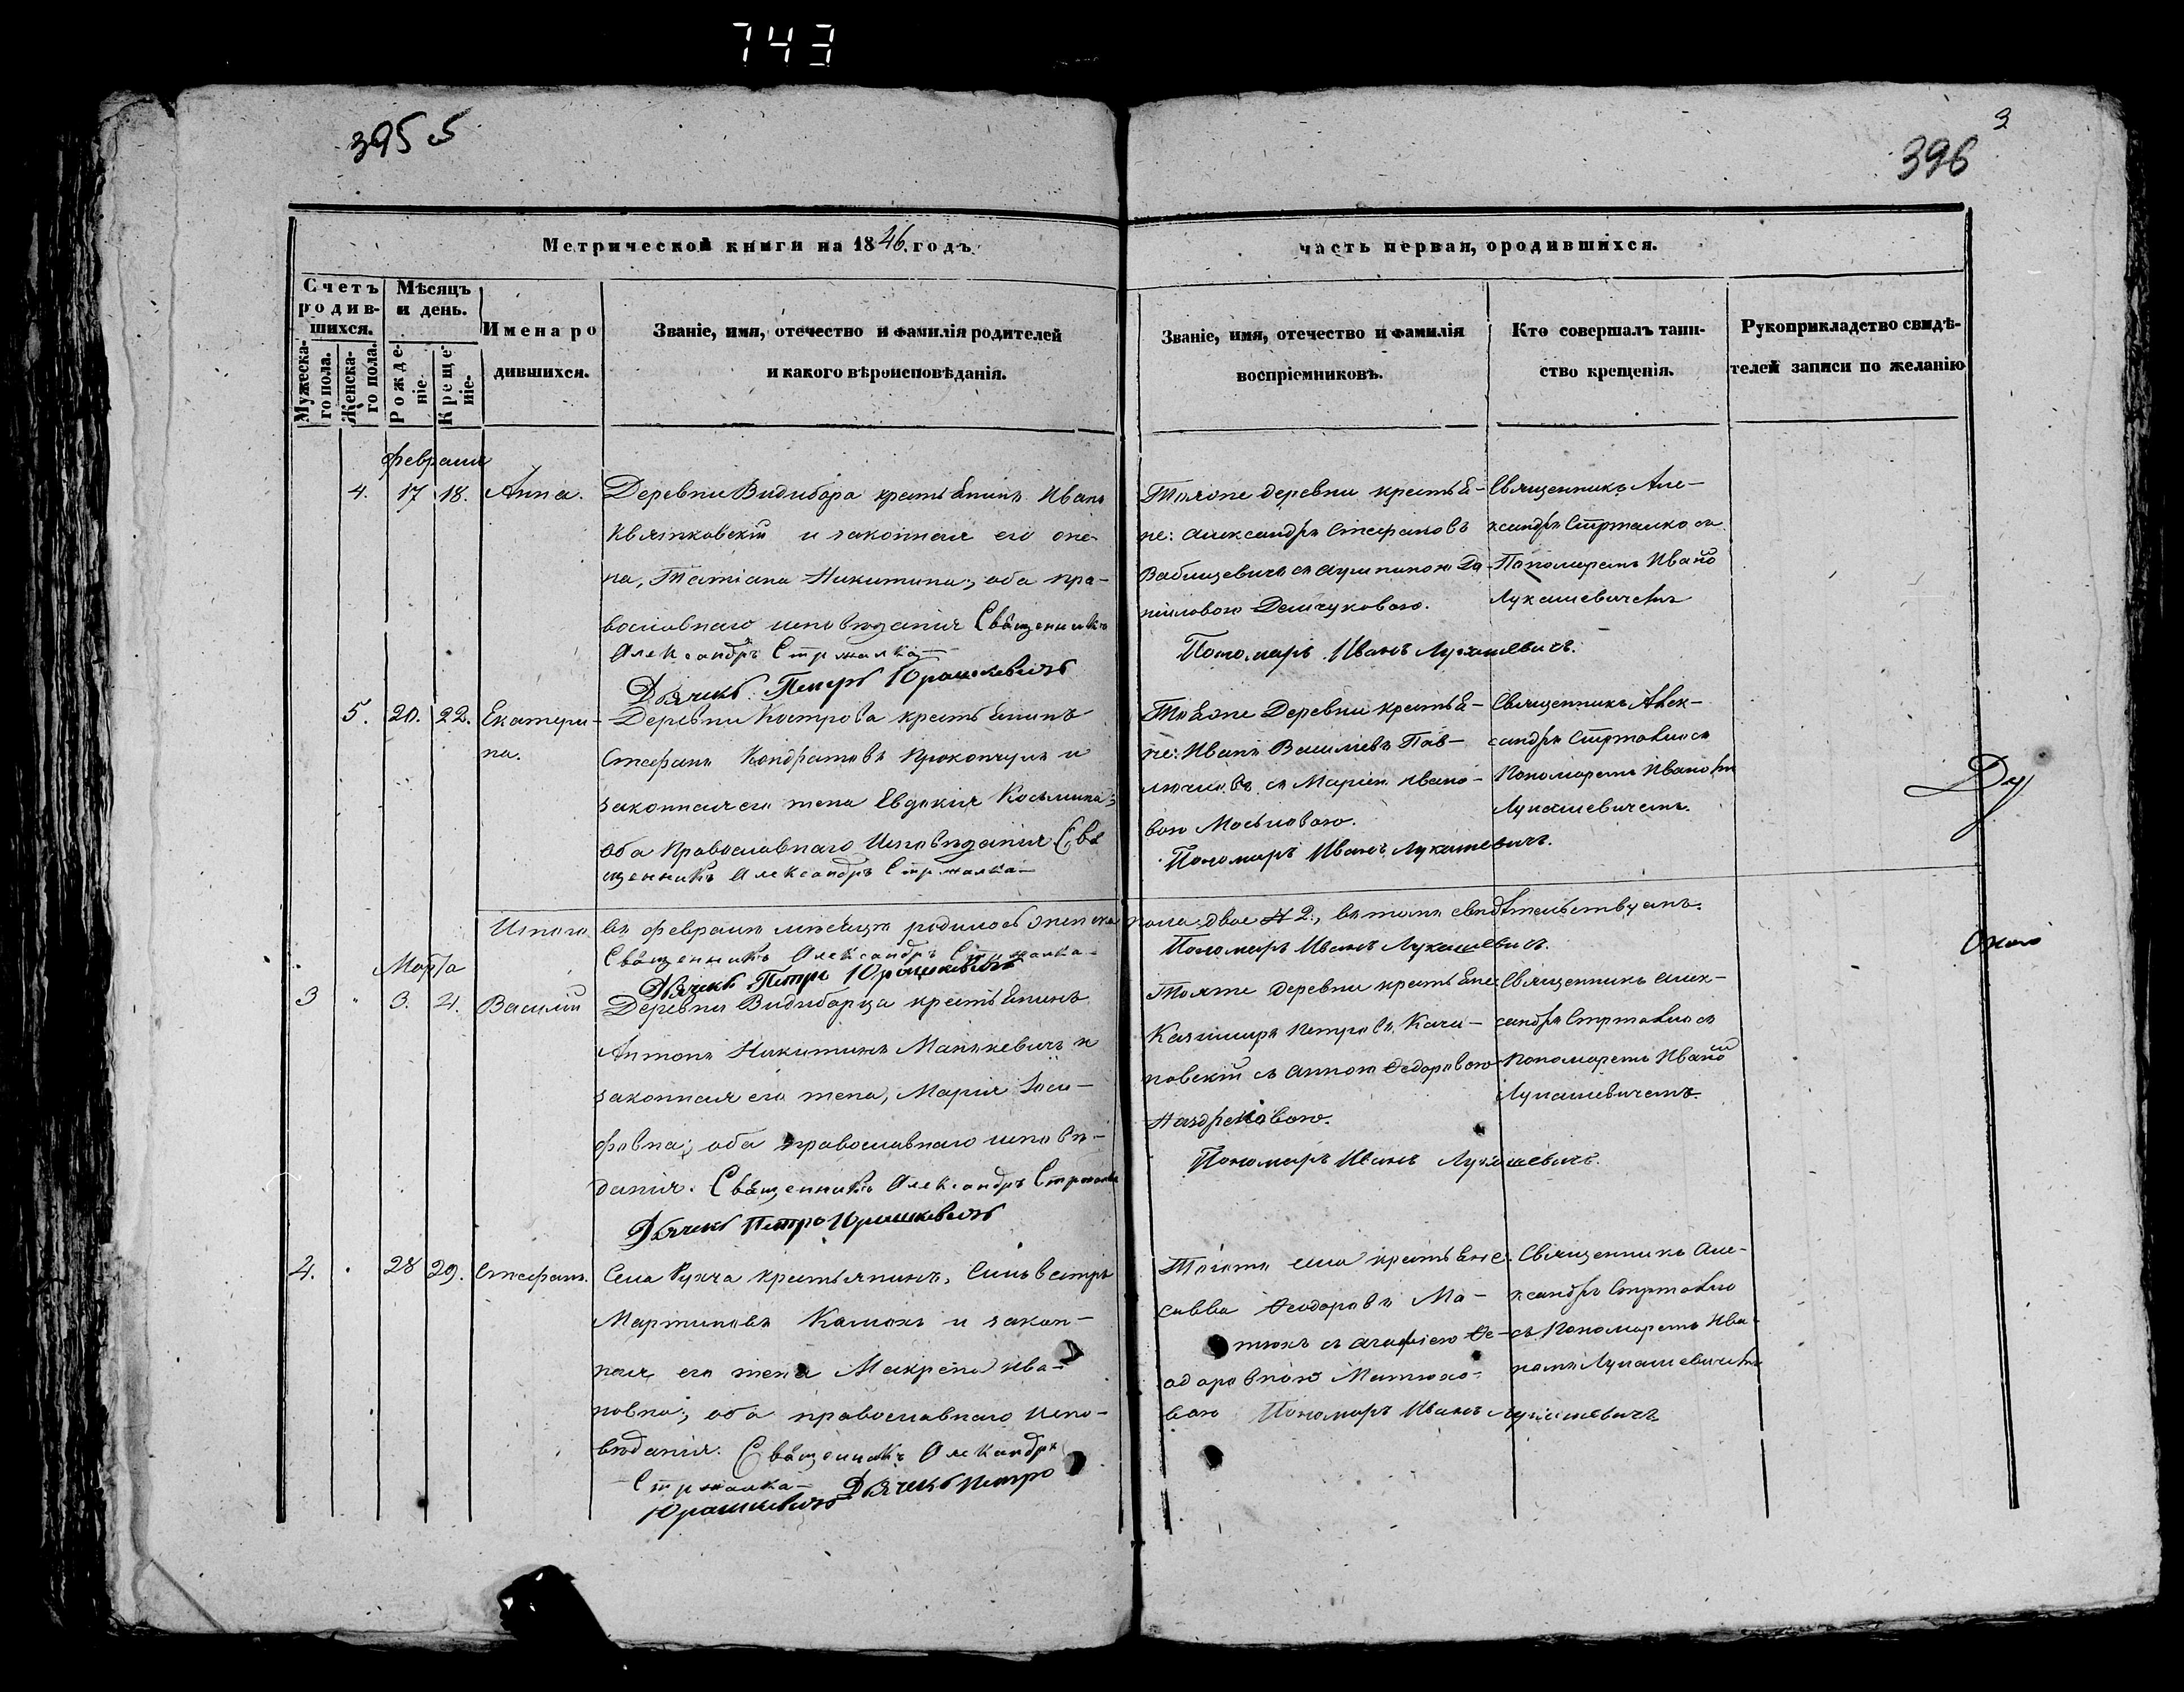 743
395 5
3
396
Метрической книги на 1846. годъ.
часть первая, ородившихся.
Счетъ родив-
шихся.
Мужеска-
го пола.
Женска-
го пола.
Мѣсяцъ
и день.
Рожде-
ніе.
Креще-
ніе.
Имена ро
дившихся.
Званіе, имя, отечество и фамилія родителей
и какого вѣроисповѣданія.
Званіе, имя, отечество и фамилія
воспріемниковъ.
Кто совершалъ таин-
ство крещенія.
Рукоприкладство свидѣ-
телей записи по желанію
февраля
4. 17 18. Анна.
Деревни Видибора крестьянинъ Иванъ
Квятковскій и законная его же-
на, Татіана Никитина; оба пра-
вославнаго исповѣданія Священникъ
Александръ Стржалка
Дьячекъ Петръ Юрашкевичъ
Тояже деревни крестья-
не: Александръ Стефановъ
Вабищевичъ съ Агипиною Да-
ниловою Демчуковою.
Пономарь Иванъ Лукашевичъ.
Священникъ Але-
ксандръ Стржалко съ
Пономаремъ Иваномъ
Лукашевичемъ
5. 20. 22. Екатери-
на.
Деревни Кострова крестьянинъ
Стефанъ Кондратовъ Прокопчукъ и
законная его жена Евдокія Косьмина;
оба Православнаго Исповѣданія Свя
щенникъ Александръ Стржалка
Тояже Деревни крестья-
не: Иванъ Василіевъ Пав-
съ Маріею Ивано-
вою
Пономарь Иванъ Лукашевичъ.
Священникъ Алек-
сандръ Стржалко съ
Пономаремъ Иваномъ
Лукашевичемъ.
Ду
Итого въ февралѣ мѣсяцѣ родилось женска пола двое 2, въ томъ свидѣтельствуемъ.
Священникъ Александръ Стржалка
Пономарь Иванъ Лукашевичъ.
Дьячекъ Петръ Юрашкевичъ
Марта
3 3. 4. Василій
Деревни Видиборца крестьянинъ
Антонъ Никитинъ Манкевичъ и
законная его жена, Марія Іоси-
фовна; оба православнаго исповѣ-
данія. Священникъ Александръ Стржалка
Дьячекъ Петръ Юрашкевичъ
Тояже деревни крестьяне:
Казимиръ Петровъ Качи-
новскій съ Анною Ѳедоровою
Пономарь Иванъ Лукашевичъ.
Священникъ Алек-
сандръ Стржалко съ
Пономаремъ Иваномъ
Лукашевичемъ.
4. 28 29. Стефанъ.
Села Кухча крестьянинъ, Сильвестръ
Мартиновъ Камокъ и закон-
ная его жена Макрена Ива-
новна; оба православнаго Испо-
вѣданія. Священникъ Александръ
Стржалка Дьячекъ Петръ
Юрашкевичъ
Тогоже села крестьяне:
Савва Ѳеодоровъ Ма-
тюхъ съ Агафіею Ѳе-
одоровною Матюхо-
вою Пономарь Иванъ Лукашевичъ
Священникъ Але-
ксандръ Стржалко
съ Пономаремъ Ива-
номъ Лукашевичемъ